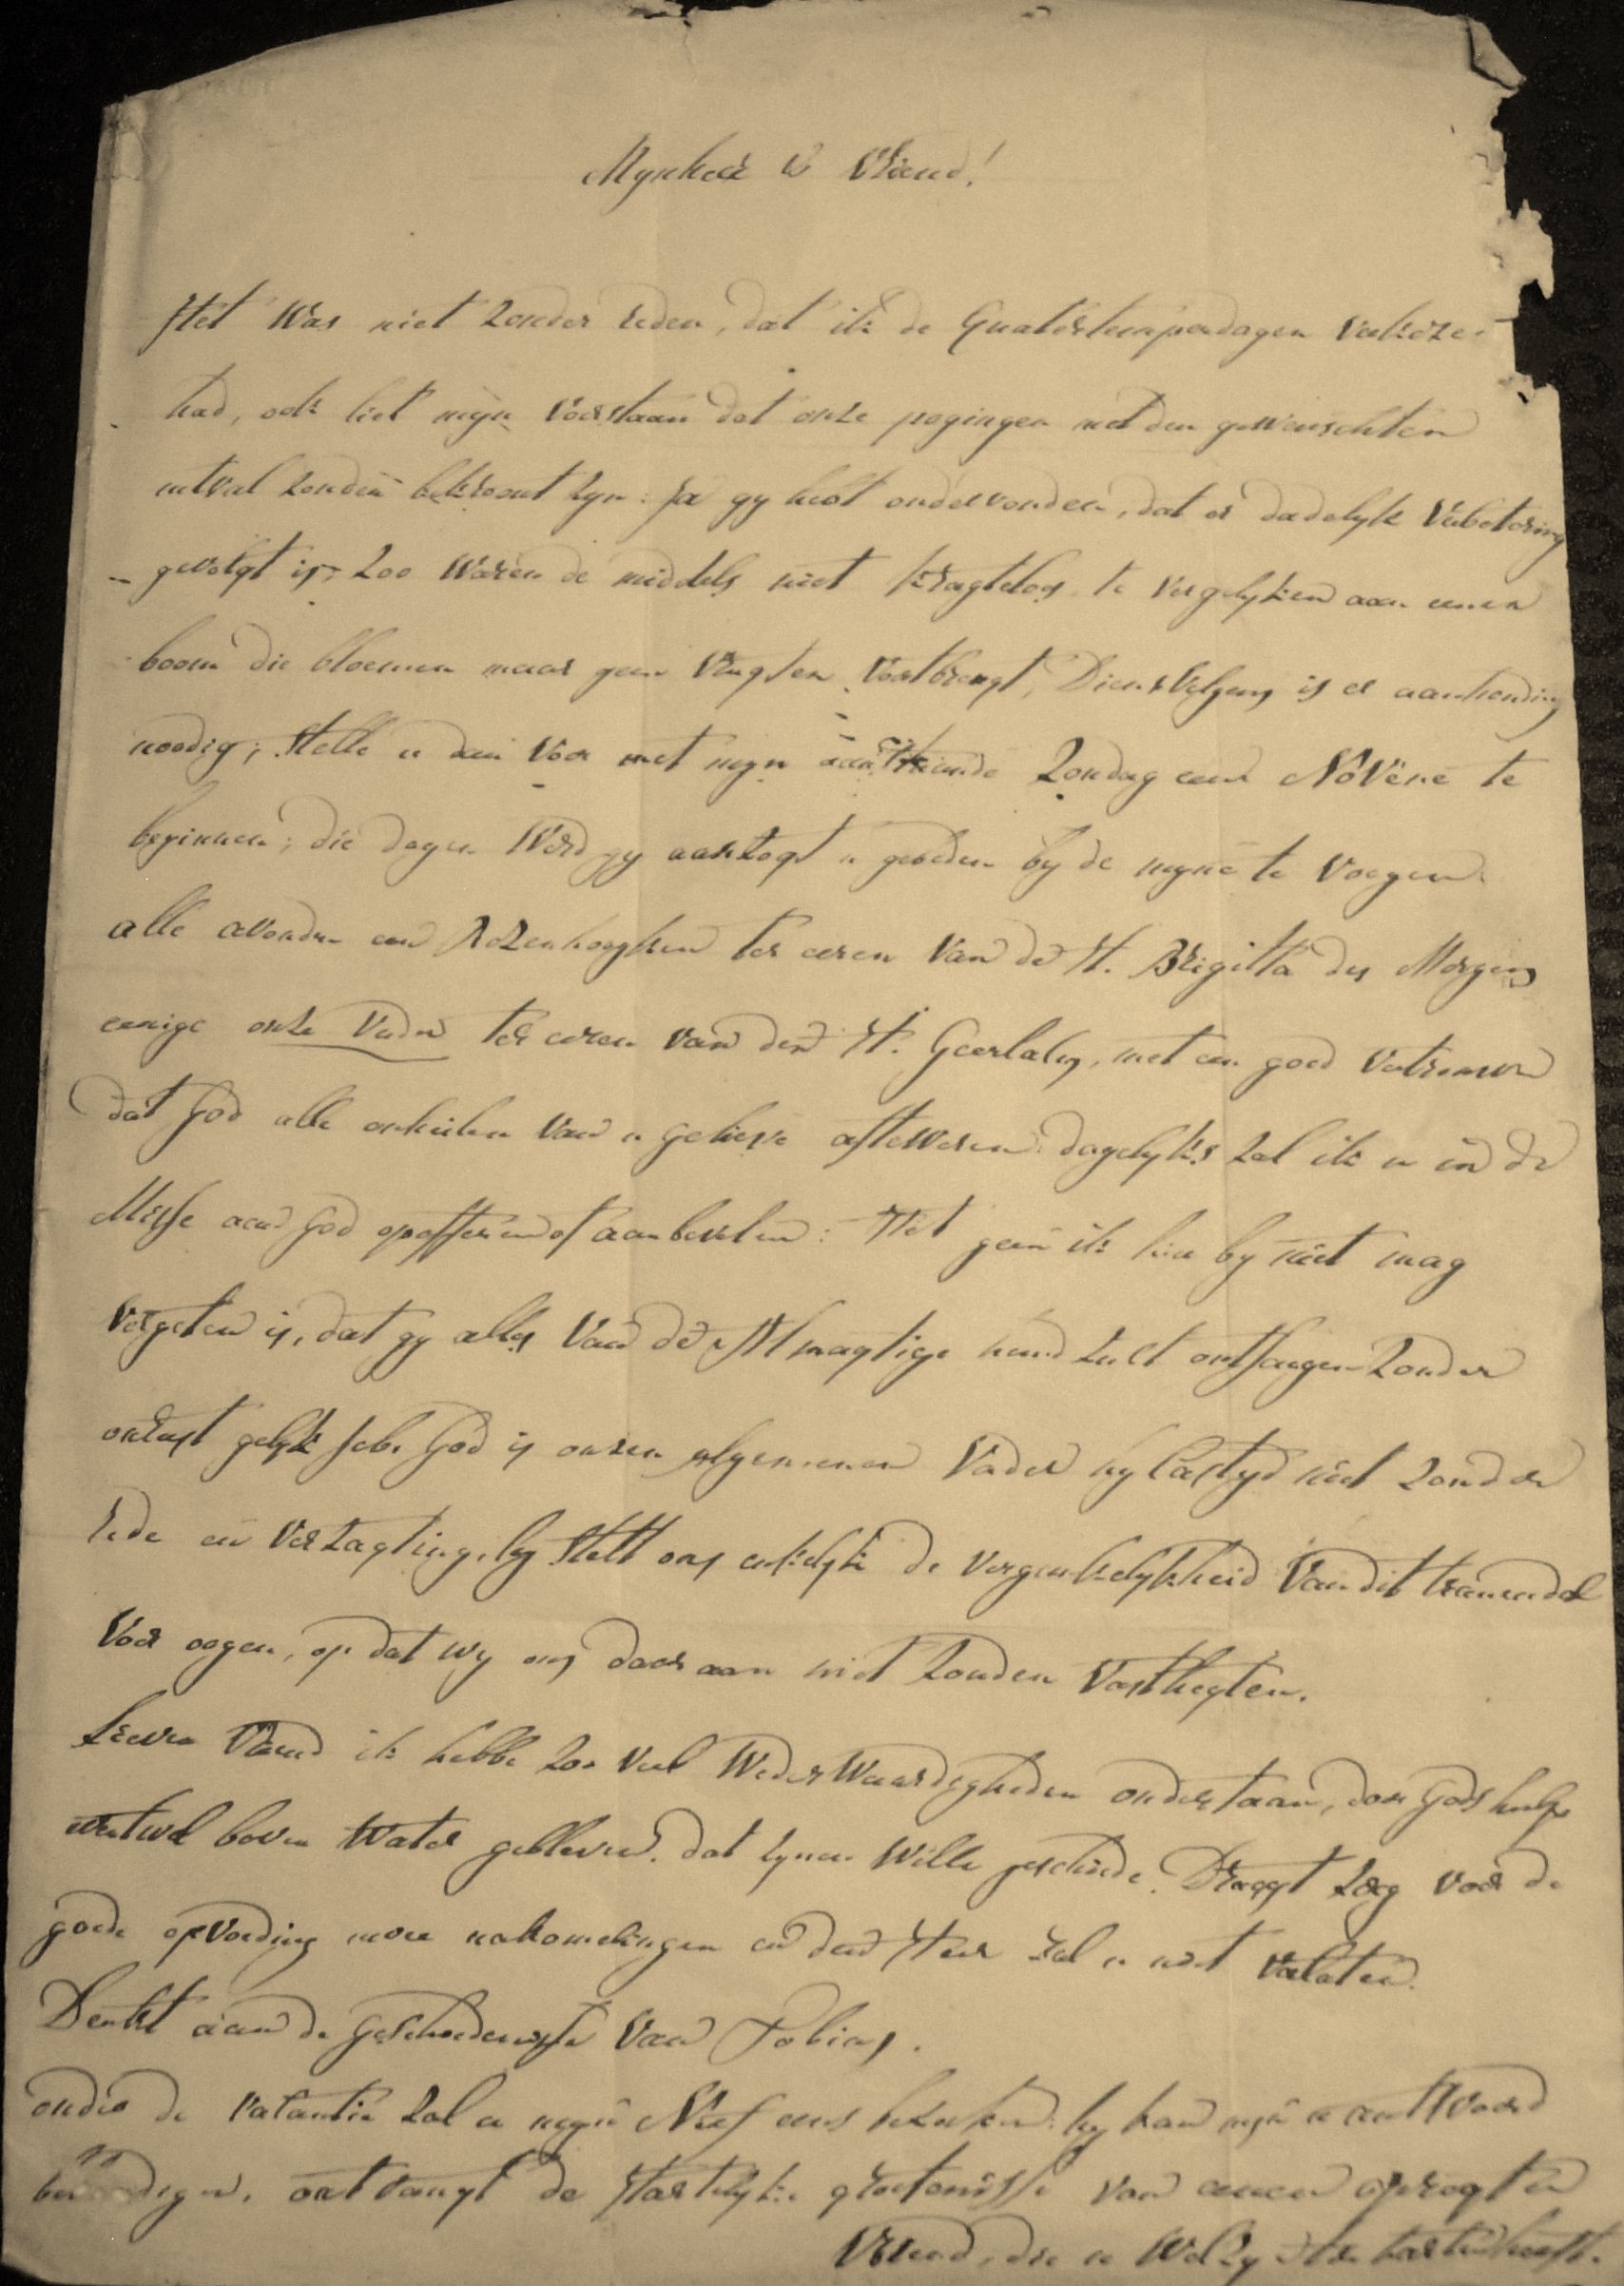 Mynheer & Vriend!
Het Was niet Zonder reden, dat ik de Quatertemperdagen Verkozen
had, ook liet myn Voorstaan dat onze pogingen met den gewenschten
uitval Zouden bekroont Zyn: Ja gy hebt ondervonden, dat er dadelyk Verbetering
gevolgt is, Zoo Waren de middels niet kragteloos te Vergelyken aan eenen
boom die bloemen maar geen Vrugten Voortbrengt, Diensvolgens is er aanhouding
noodig; Stelle u dan Voor met myn aanstaande Zondag eene NoVene te
beginnen; die dagen Word gy aanzogt u gebeden by de myne te Voegen
alle avonden een Rozenhoeyken ter eeren Van de H. Brigitta des Morgens
eenige onze Vader ter eeren Van den H. Geerlakus, met een goed Vertrouwen
dat God alle onheilen Van u gelieve afteweren: dagelyks Zal ik u in de
Misse aan God opofferen of aanbevelen: Het geen ik hier by niet mag
Vergeten is, dat gy alles Van de Almagtige hand Zult ontfangen Zonder
onrust gelyk Job. God is onzen algemenen Vader hy Castyd niet Zonder
rede en Verzagting, hy Stelt ons enkelyk de Vergankelykheid Van dit tranendal
Voor oogen, op dat wy ons daer aan niet Zouden Vasthegten.
Lieven Vriend ik hebbe Zoo Veel WederWaardigheden onderstaan, door Gods hulpe
eventwel boven Water gebleven. dat Zynen Wille geschiede. Draagt Zorg Voor de
goede opvoeding uwer nakomelingen en den Heer Zal u niet Verlaten.
Denkt aan de Geschiedenisse Van Tobias.
onder de Vacantie Zal u myn Neef eens bezoeken: hy kan myn u antWoord
ontvangt de Hartelyke groetenisse van eenen opregten
Vriend, die u Welzyn ter harten heeft.